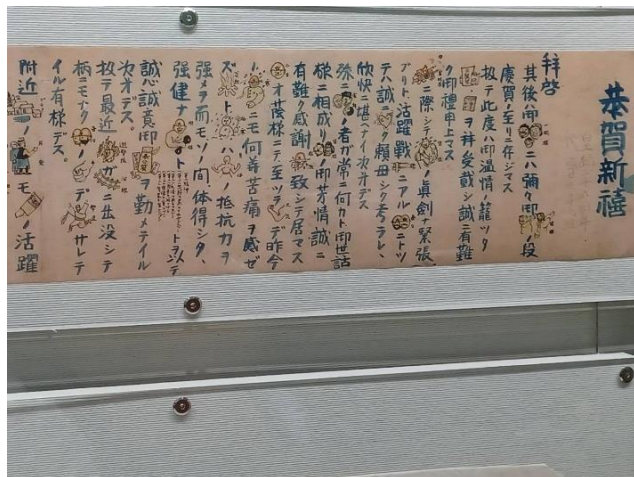 恭賀新禧
拝啓
其後ハ御ニハ彌々御ノ段
慶賀ノ至リニ存ジマス
扨テ此度ハ御温情ノ籠ツタ
ヲ拝受戴シ誠ニ有難
ク御禮申上マス
ニ際シテノ眞剣ナ緊張
ブリト、活躍戦ニアルニトツ
テハ誠ニク頼母シク考ラレ、
欣快ニ堪ヘナイ次オデス
弥ノ者ガ常ニ何カト御世話
様ニ相成リ御芳情誠ニ
有難ク感謝致シテ居マス
オ蔭様ニテ至ツテデ昨今
トニモ何等苦痛ヲ感ゼ
ズトハノ抵抗力ヲ
強メヲ而モソノ間体得シタ、
強健ナト
誠心誠意御ヲ勤メテイル
次オデス。
扨テ最近ガニ出没シテ
柄ニモナクノデサレテ
イル有様デス。
附近ノノモノ活躍